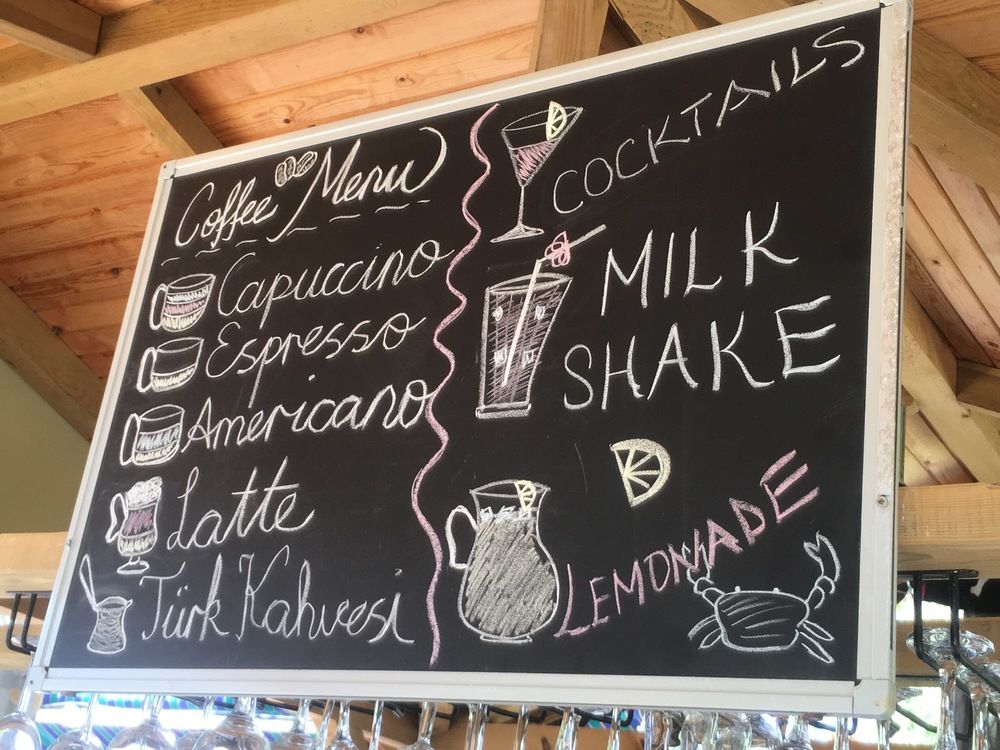 Coffee Menu
Capuccino
Espresso
Americano
Latte
Türk Kahvesi
COCKTAILS
MILK
SHAKE
LEMONADE